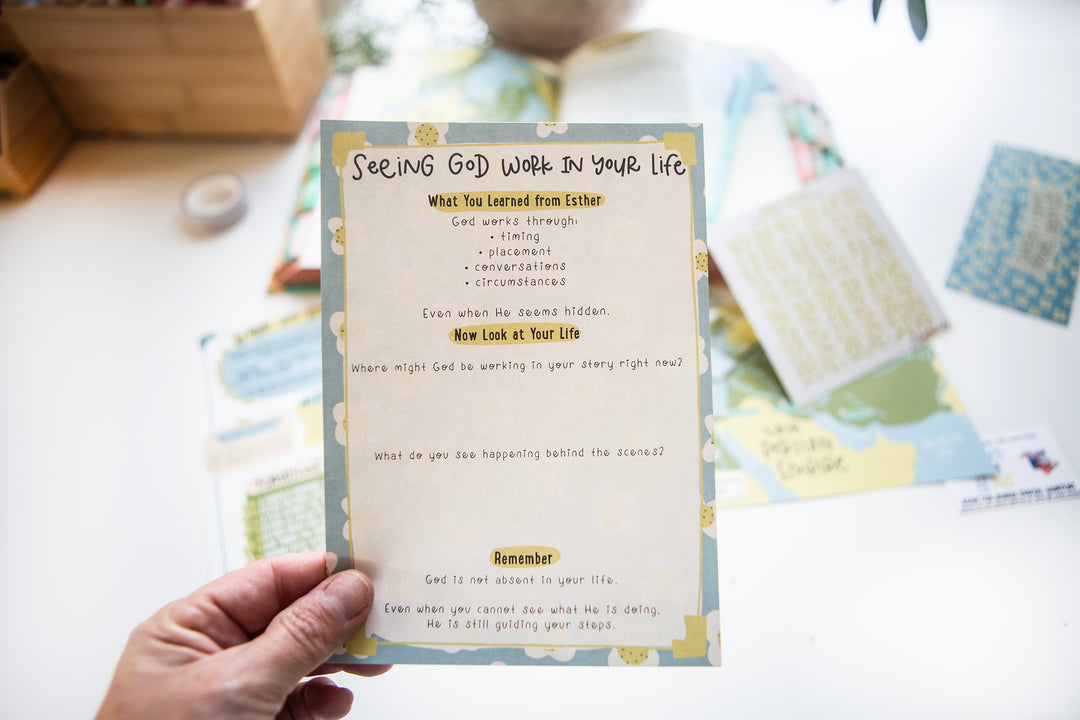 Seeing God Work In Your Life
What You Learned from Esther
God works through:
• timing
• placement
• conversations
• circumstances
Even when He seems hidden.
Now Look at Your Life
Where might God be working in your story right now?
What do you see happening behind the scenes?
Remember
God is not absent in your life.
Even when you cannot see what He is doing,
He is still guiding your steps.
THE
PERSIAN
EMPIRE